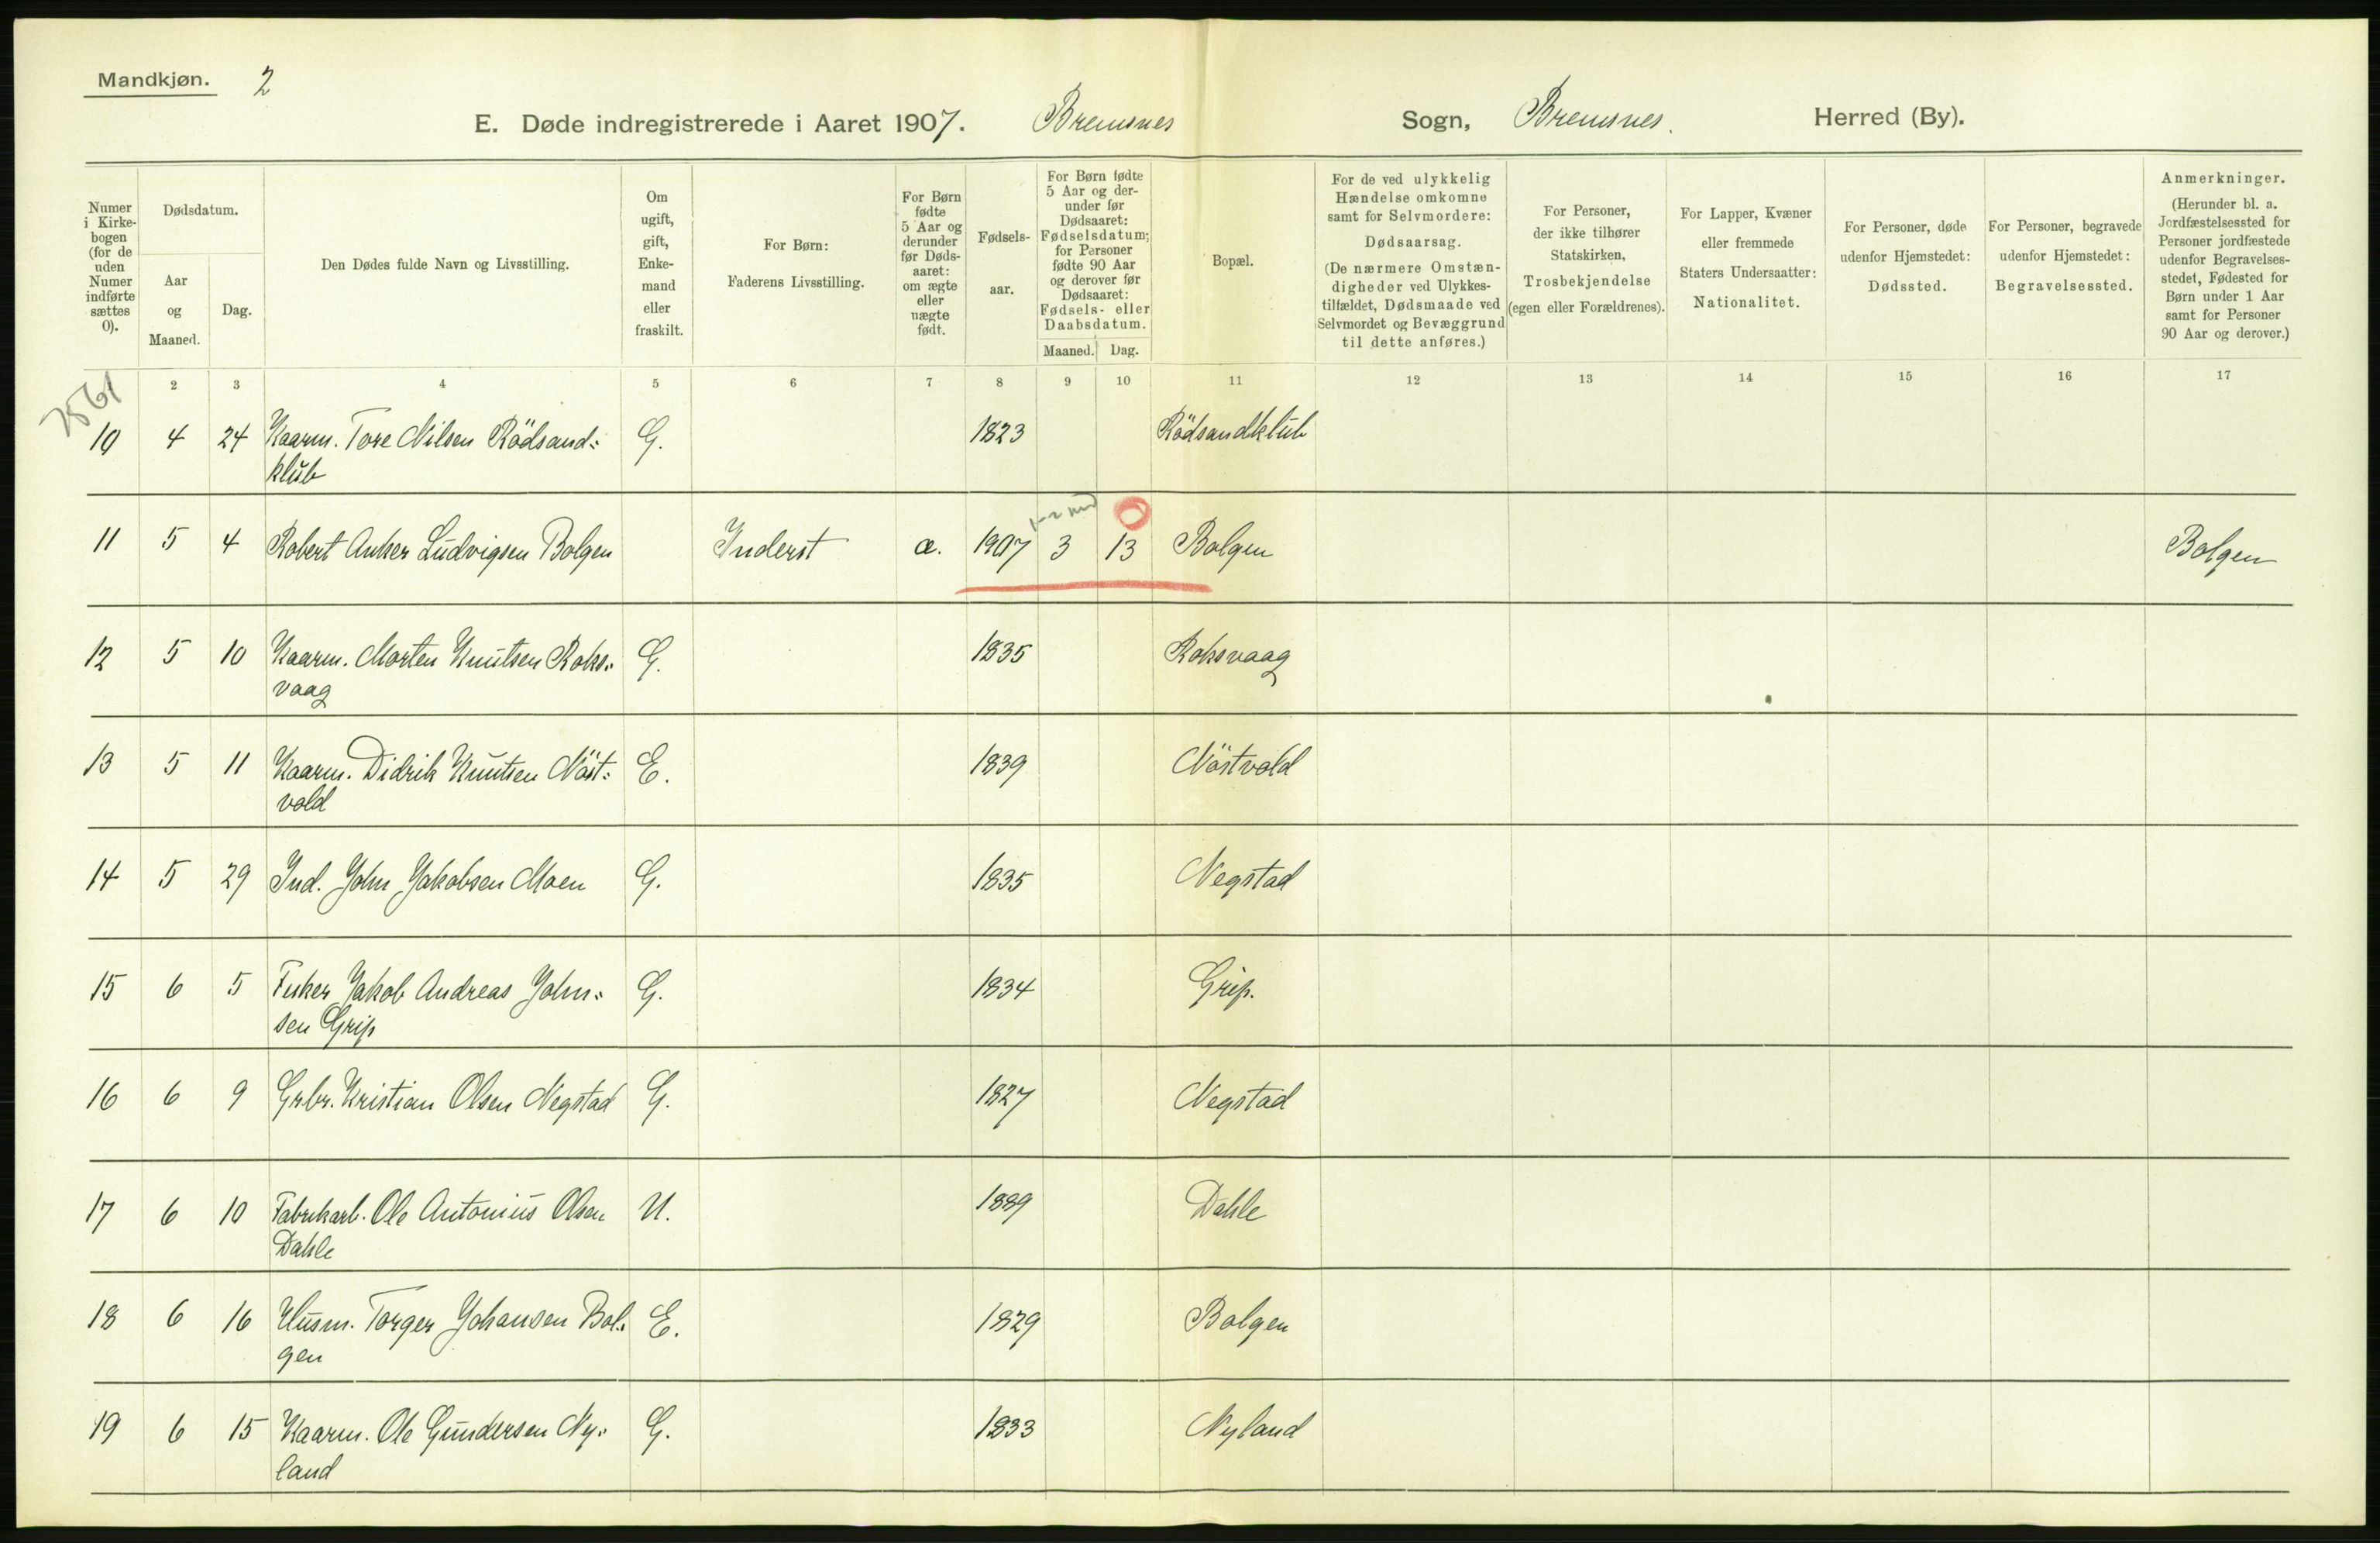 Mandkjøn. 2
E. Døde indregistrerede i Aaret 1907. Bremsnes Sogn, Bremsnes. Herred (By).
Numer
i Kirke-
bogen
(for de
uden
Numer
indførte
sættes
0).
Dødsdatum.
Aar
og
Maaned.
Dag.
Den Dødes fulde Navn og Livsstilling.
Om
ugift,
gift,
Enke-
mand
eller
fraskilt.
For Børn:
Faderens Livsstilling.
For Børn
fødte
5 Aar og
derunder
før Døds-
aaret:
om ægte
eller
uægte
født.
Fødsels-
aar.
For Børn fødte
5 Aar og der-
under før
Dødsaaret:
Fødselsdatum;
for Personer
fødte 90 Aar
og derover før
Dødsaaret:
Fødsels- eller
Daabsdatum.
Maaned. Dag.
Bopæl.
For de ved ulykkelig
Hændelse omkomne
samt for Selvmordere:
Dødsaarsag.
(De nærmere Omstæn-
digheder ved Ulykkes-
tilfældet, Dødsmaade ved
Selvmordet og Bevæggrund
til dette anføres.)
For Personer,
der ikke tilhører
Statskirken,
Trosbekjendelse
(egen eller Forældrenes).
For Lapper, Kvæner
eller fremmede
Staters Undersaatter:
Nationalitet.
For Personer, døde
udenfor Hjemstedet:
Dødssted.
For Personer, begravede
udenfor Hjemstedet:
Begravelsessted.
Anmerkninger.
(Herunder bl. a.
Jordfæstelsessted for
Personer jordfæstede
udenfor Begravelses-
stedet, Fødested for
Børn under 1 Aar
samt for Personer
90 Aar og derover.)
2 3 4 5 6 7 8 9 10 11 12 13 14 15 16 17
7561
10 4 24 Kaarm. Tore Nilsen Rödsand: G. 1823 Rödsandklub
klub
11 5 4 Robert Anker Ludvigsen Bolgen Inderst æ. 1907 3 13 Bolgen Bolgen
12 5 10 Kaarm. Morten Knutsen Roks: G. 1835 Roksvaag
vaag
13 5 11 Kaarm. Didrik Knutsen Nöst: E. 1839 Nöstvold
vold
14 5 29 Ind. John Jakobsen Moen G. 1835 Negstad
15 6 5 Fisker Jakob Andreas John: G. 1834 Grip.
sen Grip
16 6 9 Grbr. Kristian Olsen Negstad G. 1827 Negstad
17 6 10 Fabrikarb. Ole Antonius Olsen U. 1889 Dahle
Dahle
18 6 16 Husm. Torger Johansen Bol: E. 1829 Bolgen
gen
19 6 15 Kaarm. Ole Gundersen Ny: G. 1833 Nyland
land